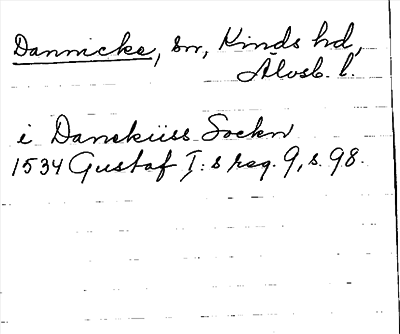 Dannicke, sn, Kinds hd,
Älvsb. l.
i Danekiiss Sockn
1534 Gustaf I:s reg. 9, s. 98.